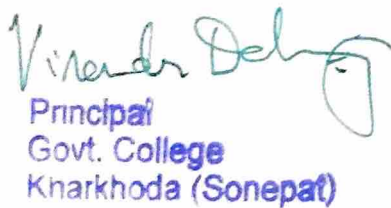 Virender
Principal
Govt. College
Kharkhoda (Sonepat)